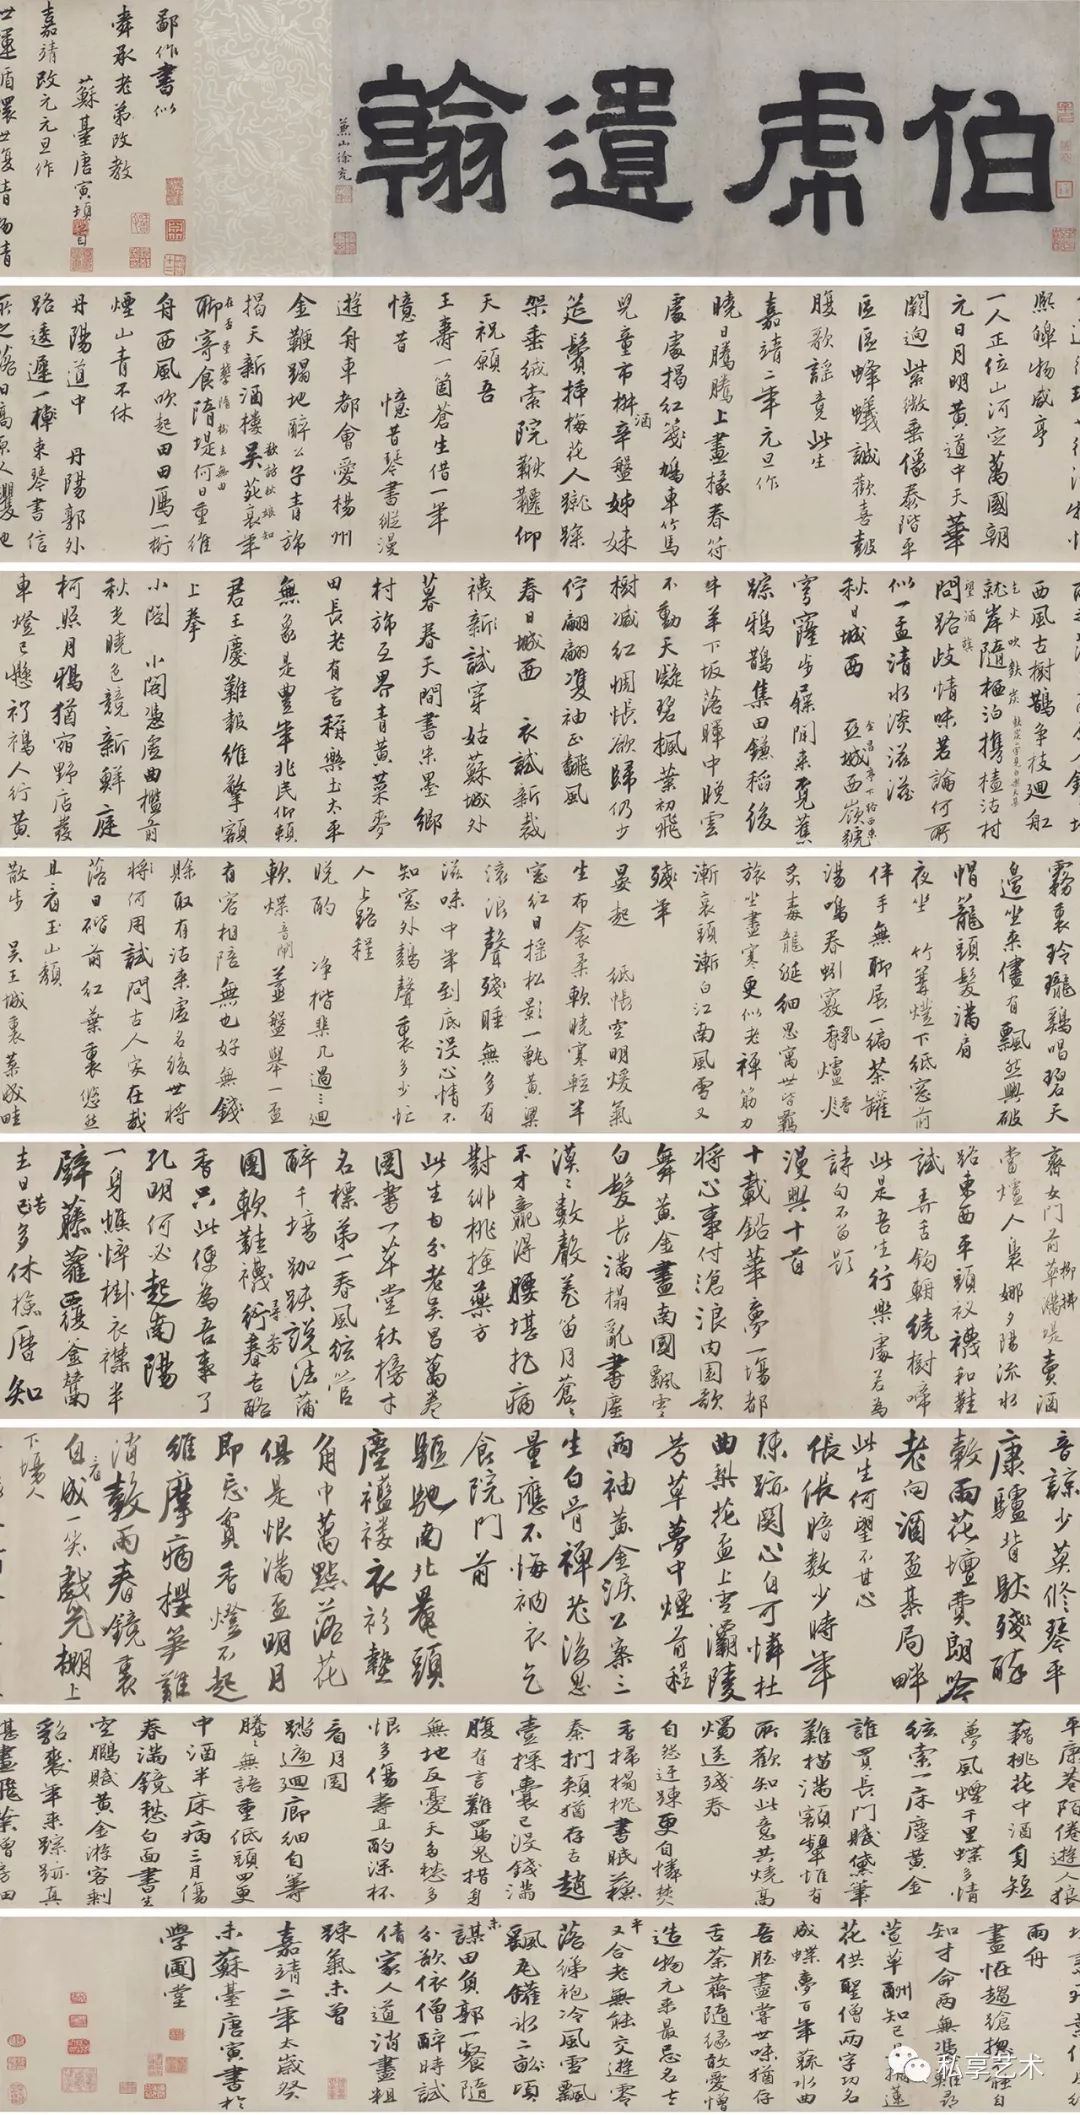 伯虎遺翰
山徐充
鄙作書似
舜承老弟改教
蘇臺唐寅頓首
嘉靖改元元旦作
世運循環世復清物情
熙皞物咸亨
一人正位山河定萬國朝
元日月明黃道中天華
闕迥紫微垂像泰階平
區區蜂蟻誠歡喜鼓
腹歌謠竟此生
嘉靖二年元旦作
曉日騰騰上畫椽春符
處處揭紅箋鳩車竹馬
兒童市椒酒辛盤姊妹
筵鬢插梅花人蹴踘
架垂絨索院鞦韆仰
天祝願吾
王壽一箇蒼生借一年
憶昔 憶昔琴書縱漫
遊舟車都會愛楊州
金鞭躅地醉公子青旆
揭天新酒樓吳苑衰年
聊寄食隋堤何日重維
舟西風吹起田田雁一行
煙山青不休
丹陽道中 丹陽郭外
路逶遲一棹 琴書信
所之落日高原人
西風古樹鵲爭枝廻舡
就岸隨栖泊攜榼沽村
問路歧情味若論何所
似一盂清水淡滋滋
秋日城西 亞城西嶺
穹窿步屧閒來覓舊
蹤鴉鵲集田鎌稻後
牛羊下坂落暉中晚雲
不動天凝碧楓葉初飛
樹減紅惆悵欲歸仍少
佇翩翩雙袖正飄風
春日城西 衣試新裁
襪新試穿姑蘇城外
暮春天間書朱墨鄉
村旆互界青黃菜麥
田長老有言稱樂土太平
無象是豐年兆民仰賴
君王慶難報維擎額
上拳
小閣 小閣憑虛曲檻前
秋光曉色競新鮮庭
柯照月鴉猶宿野店發
車燈已懸 人行黃
霧裏玲瓏鷄唱碧天
邊坐來儘有飄然興破
帽籠頭髮滿肩
夜坐 竹篝燈下紙窓前
伴手無聊展一編茶罐
湯鳴春蚓竅乳爐香
炙毒龍涎細思寓世皆羈
旅坐盡寒更似老禪筋力
漸衰頭漸白江南風雪又
殘年
晏起 紙帳空明煖氣
生布衾柔軟曉寒輕半
窓紅日搖松影一甑黃粱
滚浪聲殘睡無多有
滋味中年到底沒心情不
知窓外鷄聲裏多少忙
人上路程
晚酌 淨楷棐几過廻
軟煠羹盤舉一盃
有客相陪無也好無錢
賒取有沽來虛名後世將
將何用試問古人家在哉
落日階前紅葉裏悠然
且看玉山頹
散步 吳王城裏菜成畦
齊女門前草滿堤賣酒
當爐人裊娜夕陽流水
路東西平頭衩襪和鞋
試弄舌鈎輈繞樹啼
此是吾生行樂處若為
詩句不留題
漫興十首
十載鉛華夢一場都
將心事付滄浪內園歌
舞黃金盡南國飄零
白髮長滿榻亂書塵
漠漠數聲笛月蒼蒼
不才羸得腰堪把病
對緋桃撿藥方
此生甘分老吳昌萬卷
圖書一草堂秋榜才
名標第一春風絃管
醉千塲跏趺說法蒲
團軟鞋襪尋芳衍春去酩
香只此便為吾事了
孔明何必起南陽
一身憔悴掛衣襟半
壁藤蘿覆釜鬵
去日已多休撿曆知
音諒少莫修琴平
康驢背馱殘醉
穀雨花壇費朗吟
老向酒盃棊局畔
此生何望不甘心
倀倀暗數少時年
陳跡關心自可憐杜
曲梨花盃上雪灞陵
芳草夢中煙前程
兩袖黃金淚公案三
生白骨禪老後思
量應不悔衲衣乞
食院門前
驅馳南北罨頭
塵襤褸衣衫墊
角巾萬點落花
俱是恨滿盃明月
即忘貧香燈不起
維摩病櫻笋難
消穀雨春鏡裏
自看成一笑戲先棚上
下塲人
平康巷陌倦遊人狼
藉桃花中酒身短
夢風煙千里蝶多情
絃索一床塵黃金
誰買長門賦黛筆
難描滿額顰惟有
所歡知此意共燒高
燭送殘春
自怨迂踈更自憐焚
香掃榻枕書眠蘇
秦捫頰猶存舌趙
壹探囊已沒錢滿
腹有言難罵鬼措身
無地反憂天多愁多
恨多傷壽且酌深杯
看月圓
踏遍廻廊細自籌
騰騰無語重低頭四更
中酒半床病三月傷
春滿鏡愁白面書生
空鵬賦黃金游客剩
貂裘年來踪跡真
堪畫飛葉僧房
兩舟
盡怪趨蹌
知才命兩無馮難
萱草酬知己 蓮
花供聖僧兩字功名
成蝶夢百年蔬水曲
吾肱盡嘗世味猶存
舌荼薺隨緣敢愛憎
造物元來最忌名士
又合老無能交遊零
落綈袍冷風雪飄
飄瓦罐冰二畝頃
謀田負郭一餐隨
分欲依僧醉時試
倩家人道消盡粗
踈氣未曾
嘉靖二年太歲癸
未蘇臺唐寅書於
學圃堂
私享艺术